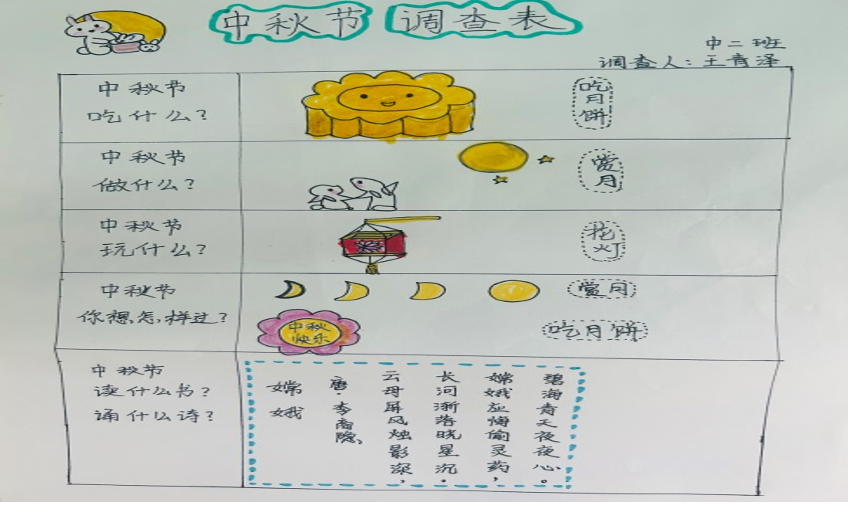 中秋节 调查表
中二班
调查人：王青泽
中秋节
吃什么？
吃月饼
中秋节
做什么？
赏月
中秋节
玩什么？
花灯
中秋节
你想怎样过？
赏月
中秋
快乐
吃月饼
中秋节
读什么书？
诵什么诗？
嫦娥
唐·李商隐
云母屏风烛影深，
长河渐落晓星沉.
嫦娥应悔偷灵药，
碧海青天夜夜心。